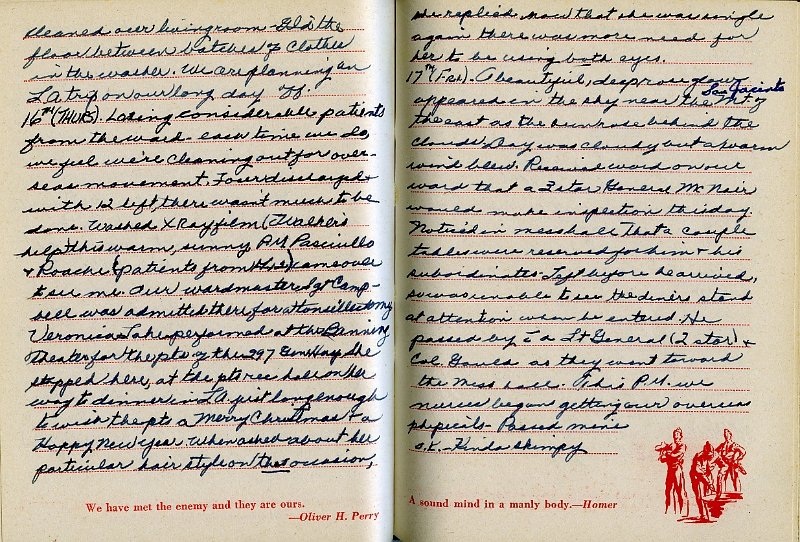 cleaned our living room - G.I'd the
floor between batches of clothes
in the washer. We are planning an
LA trip on our long day off.
16TH (THURS). Losing considerable patients
from the ward - each time we do,
we feel we're cleaning out for over-
seas movement. Four discharged +
with 12 left, there wasn't much to be
done. Washed X Ray film (Walker's
help) this warm, sunny P.M. Pascuillo
+ Roache (patients from) came over
to see me. Our wardmaster, Sgt Camp-
bell was admitted there, for a tonsillectomy
Veronica Lake performed at the Banning
Theater for the pts of the 297 Gen Hosp. She
stopped here, at the pts rec hall on her
way to dinner in LA just long enough
to wish the pts a Merry Christmas + a
Happy New Year. When asked about her
particular hair style on that occasion,
We have met the enemy and they are ours.
—Oliver H. Perry
she replied, now that she was single
again there was more need for
her to be using both eyes.
17TH (FRI). A beautiful, deep rose glow
San Jacinto
appeared in the sky near the Mt. of
the east as the sun rose behind the
clouds. Day was cloudy but a warm
wind blew. Received word on our
ward that a 3 star General McNair
would make inspection this day.
Noticed in mess hall that a couple
tables were reserved for him + his
subordinates. Left before he arrived,
so was unable to see the diners stand
at attention when he entered. He
passed by c̄ a Lt General (2 star) +
Col. as they went toward
the mess hall. This P.M. we
nurses began getting our overseas
physicals - Passed mine
o.k. - Kinda skimpy
A sound mind in a manly body.—Homer